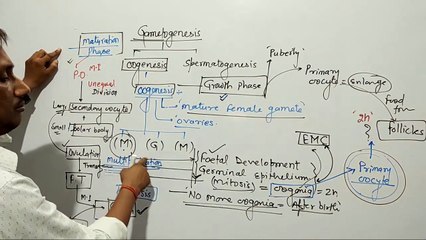 Gametogenesis
maturation
phase
oogenesis
Spermatogenesis
"Puberty"
P.O
M-I
unequal
Division
Growth phase
Primary
oocyte
enlarge
oogenesis
"mature female gamete"
ovaries
Large
Secondary oocyte
Small
Polar body
(M) (G) (M)
EMC
"2n"
food
follicles
Ovulation
Foetal Development
Germinal epithelium
(mitosis)
oogonia = 2n
No more oogonia = After birth
Primary
oocyte
M-I